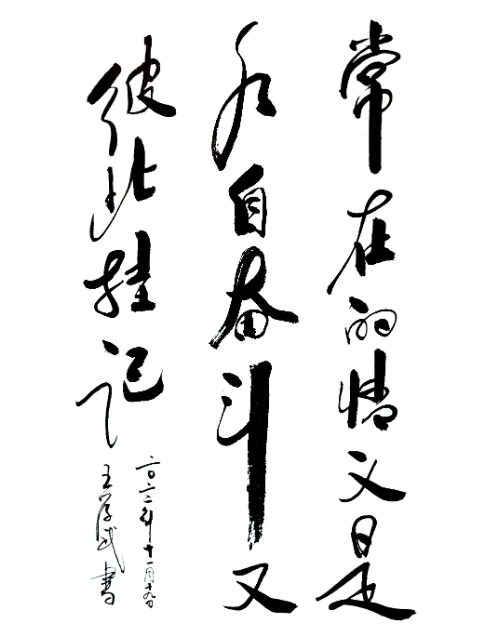 常在的情义是
各自奋斗又
彼此挂记
二〇二二年十一月十九日
王学武書